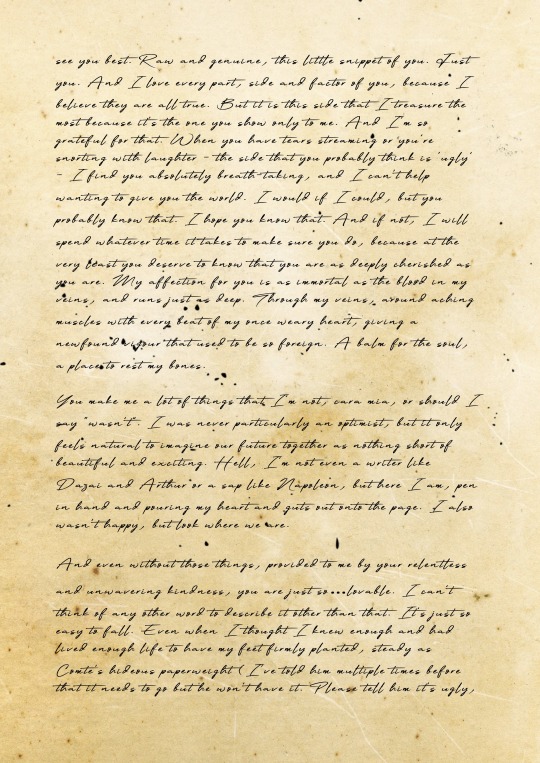 see you best. Raw and genuine, this little snippet of you. Just
you. And I love every part, side and factor of you, because I
believe they are all true. But it is this side that I treasure the
most because it's the one you show only to me. And I'm so
grateful for that. When you have tears streaming or you're
snorting with laughter - the side that you probably think is 'ugly'
- I find you absolutely breath-taking, and I can't help
wanting to give you the world. I would if I could, but you
probably know that. I hope you know that. And if not, I will
spend whatever time it takes to make sure you do, because at the
very least you deserve to know that you are as deeply cherished as
you are. My affection for you is as immortal as the blood in my
veins, and runs just as deep. Through my veins, around aching
muscles with every beat of my once weary heart, giving a
newfound vigour that used to be so foreign. A balm for the soul,
a place to rest my bones.
You make me a lot of things that I'm not, cara mia, or should I
say "wasn't". I was never particularly an optimist, but it only
feels natural to imagine our future together as nothing short of
beautiful and exciting. Hell, I'm not even a writer like
Dazai and Arthur or a sap like Napoleon, but here I am, pen
in hand and pouring my heart and guts out onto the page. I also
wasn't happy, but look where we are.
And even without those things, provided to me by your relentless
and unwavering kindness, you are just so...lovable. I can't
think of any other word to describe it other than that. It's just so
easy to fall. Even when I thought I knew enough and had
lived enough life to have my feet firmly planted, steady as
Comte's hideous paperweight (I've told him multiple times before
that it needs to go but he won't have it. Please tell him it's ugly,